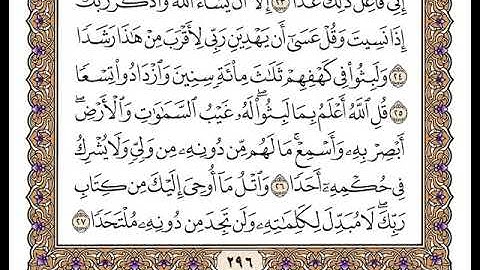 إِنِّي فَاعِلٌ ذَٰلِكَ غَدًا ٢٣ إِلَّا أَن يَشَاءَ ٱللَّهُ وَٱذْكُر رَّبَّكَ
إِذَا نَسِيتَ وَقُلْ عَسَىٰٓ أَن يَهْدِيَنِ رَبِّي لِأَقْرَبَ مِنْ هَٰذَا رَشَدًا
٢٤ وَلَبِثُوا۟ فِي كَهْفِهِمْ ثَلَٰثَ مِا۟ئَةٍ سِنِينَ وَٱزْدَادُوا۟ تِسْعًا
٢٥ قُلِ ٱللَّهُ أَعْلَمُ بِمَا لَبِثُوا۟ ۖ لَهُۥ غَيْبُ ٱلسَّمَٰوَٰتِ وَٱلْأَرْضِ ۖ
أَبْصِرْ بِهِۦ وَأَسْمِعْ ۚ مَا لَهُم مِّن دُونِهِۦ مِن وَلِيٍّ وَلَا يُشْرِكُ
فِي حُكْمِهِۦٓ أَحَدًا ٢٦ وَٱتْلُ مَآ أُوحِيَ إِلَيْكَ مِن كِتَابِ
رَبِّكَ ۖ لَا مُبَدِّلَ لِكَلِمَٰتِهِۦ وَلَن تَجِدَ مِن دُونِهِۦ مُلْتَحَدًا ٢٧
٢٩٦